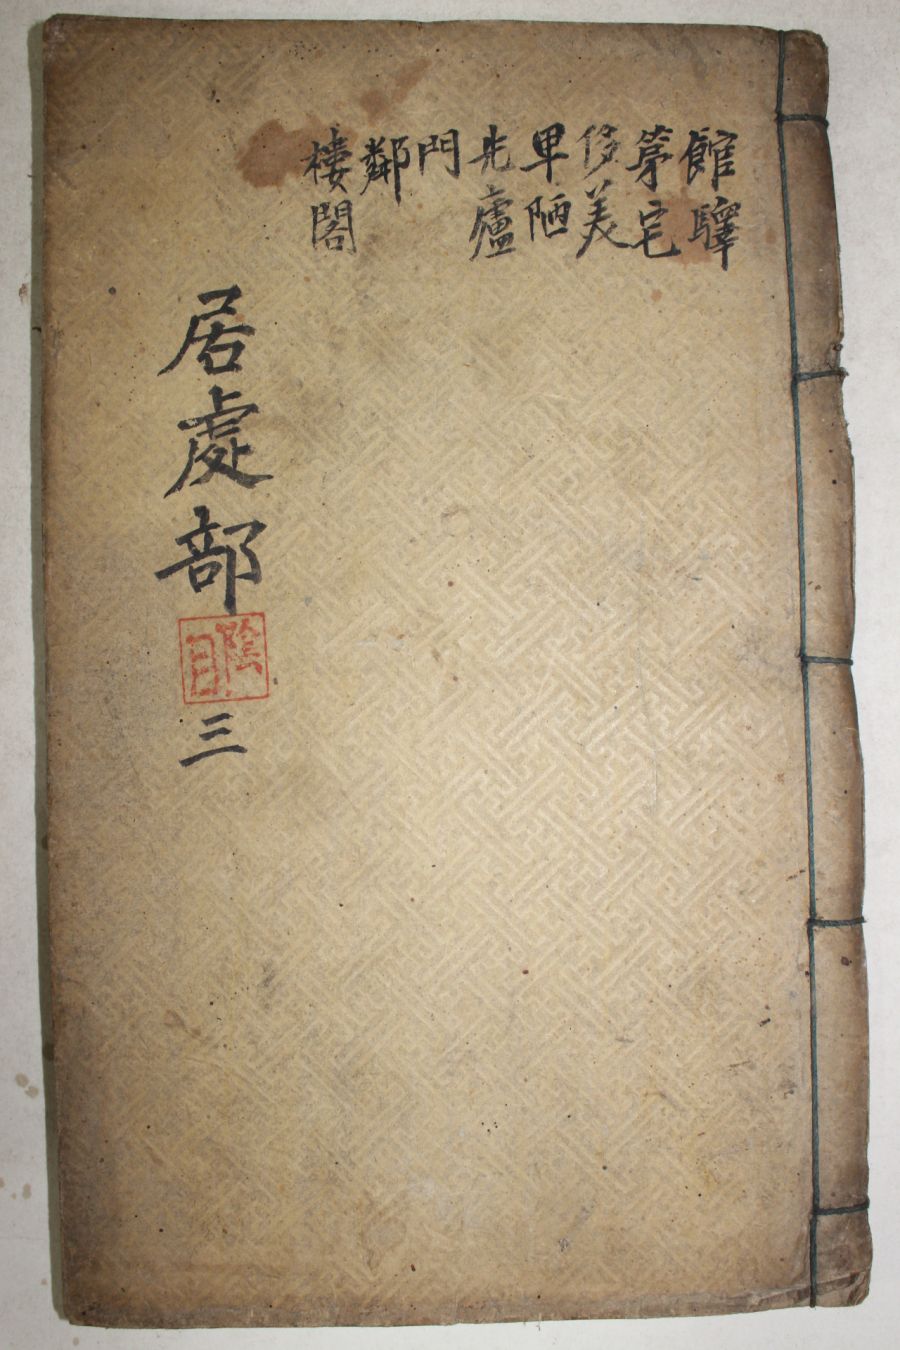 館驛
茅宅
侈美
卑陋
先廬
門
鄰
樓閣
居處部
三